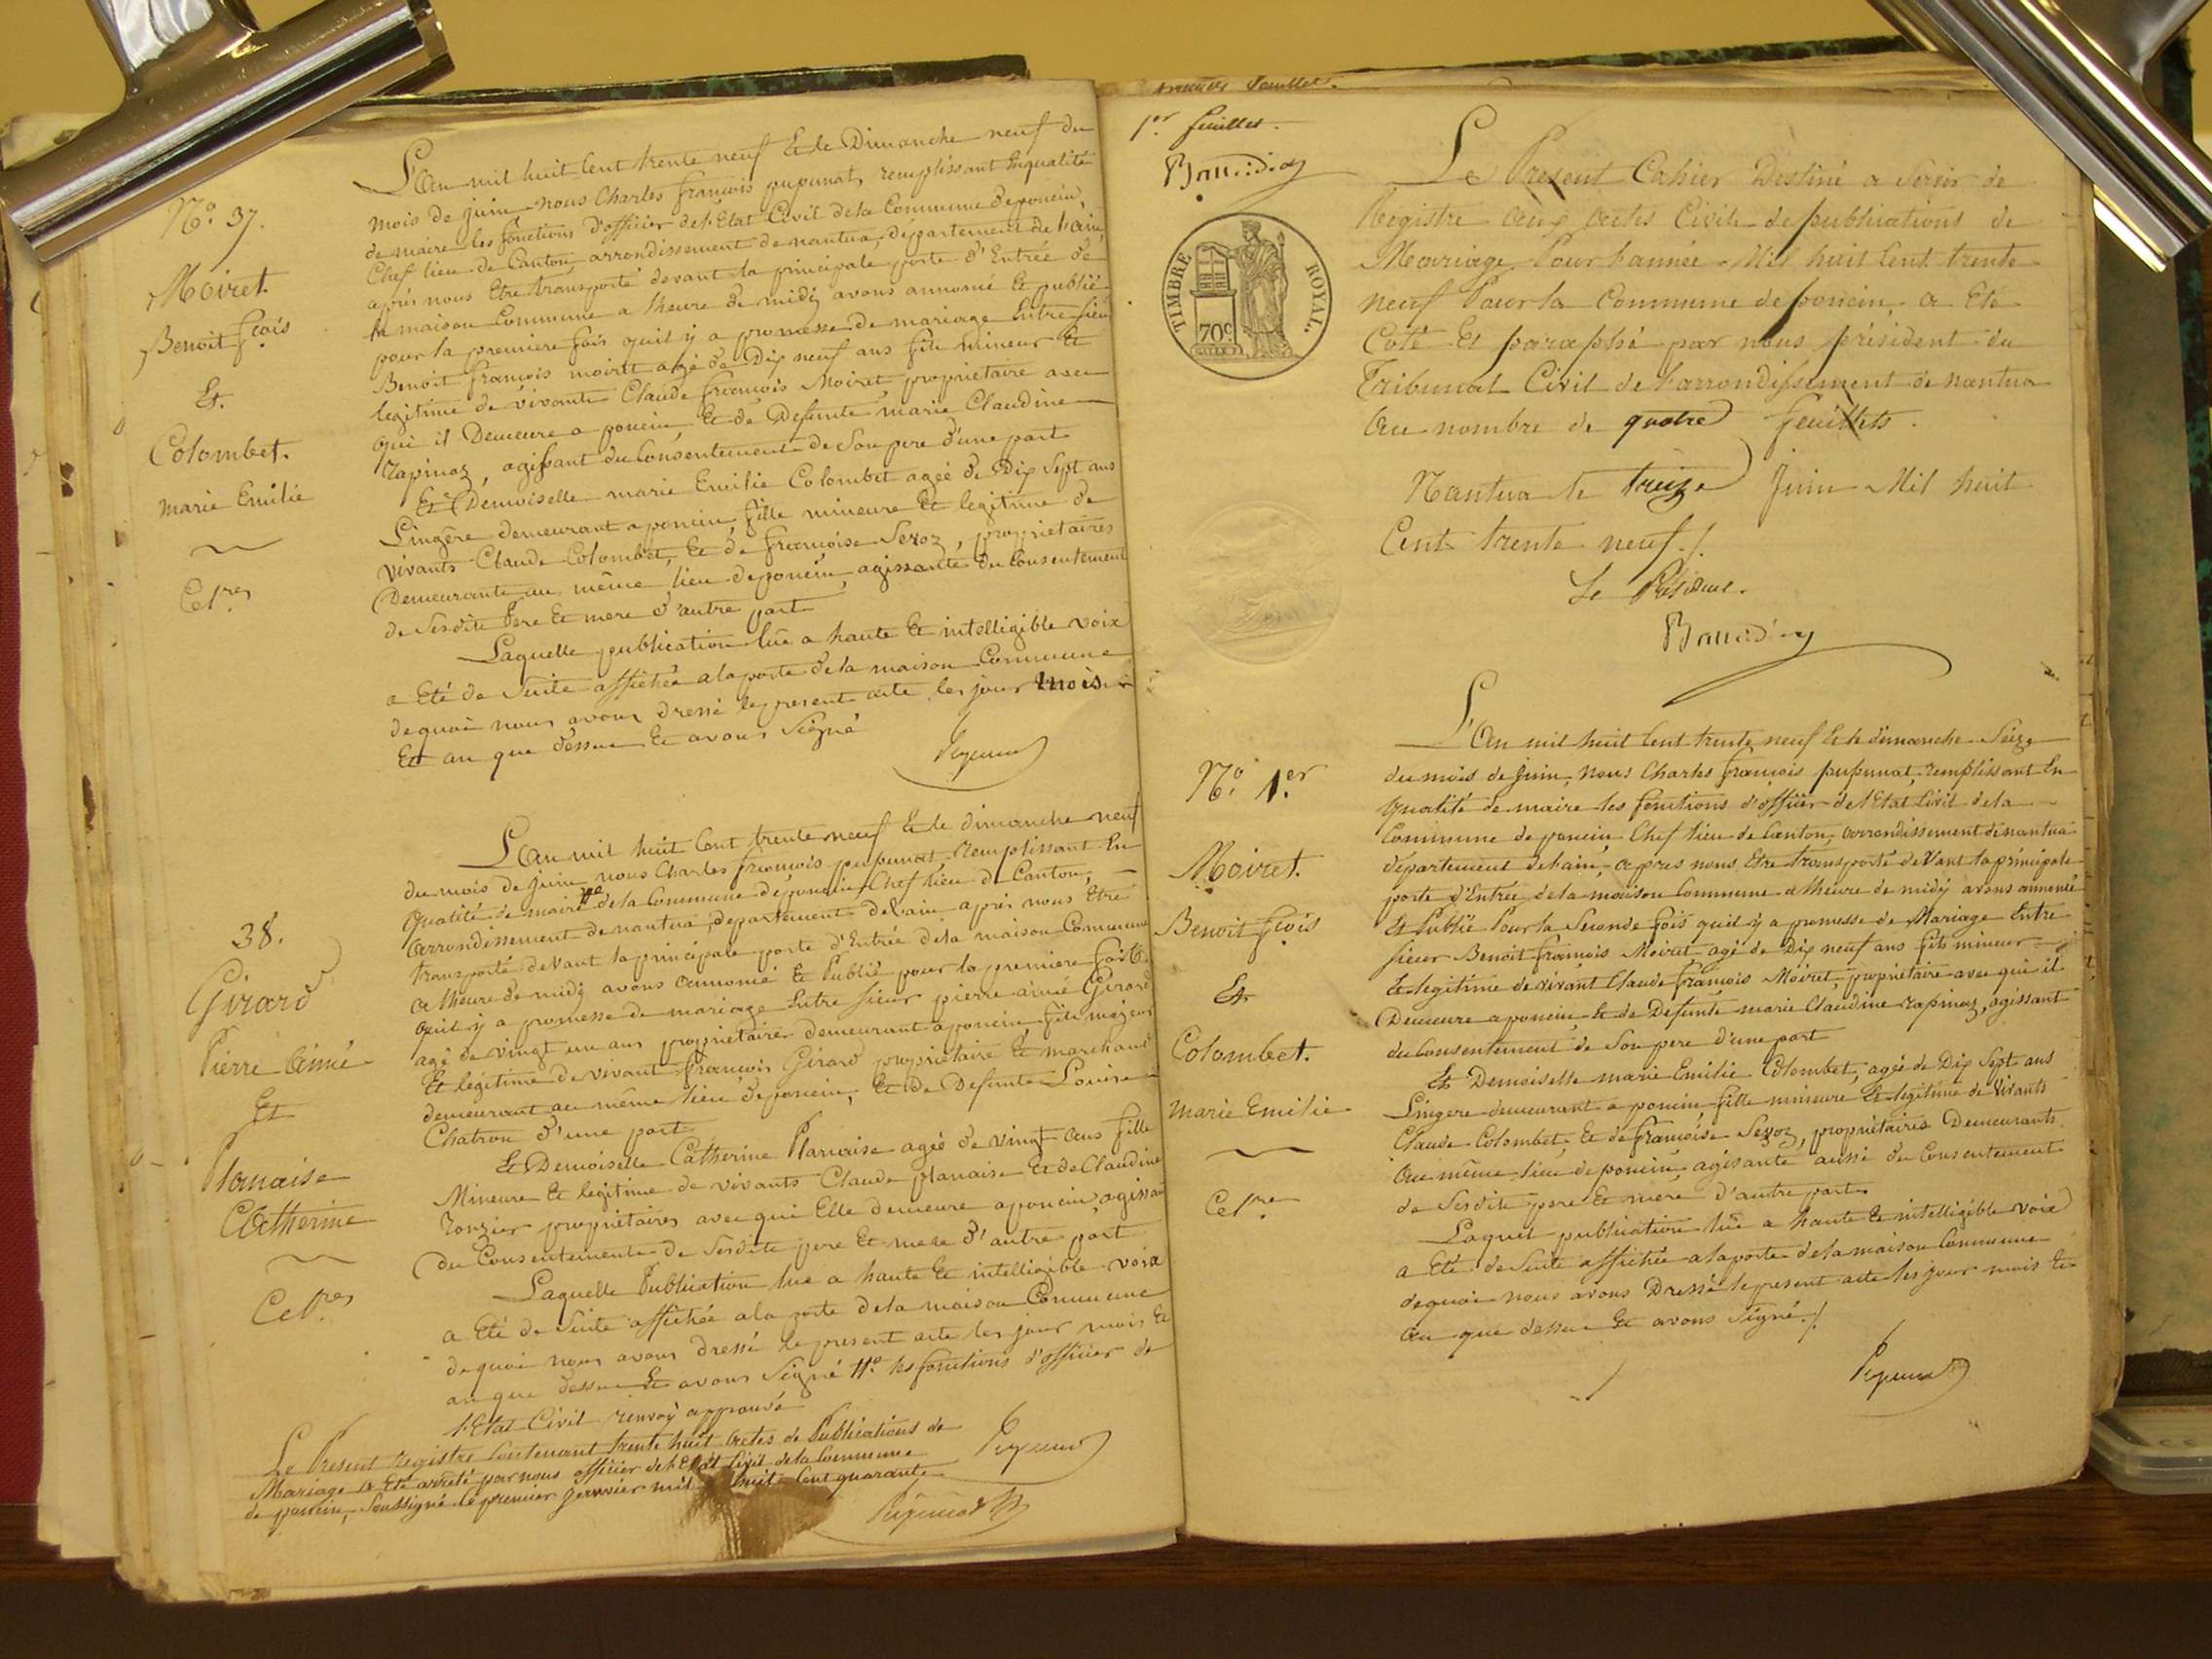 N.o 37.
Moiret.
Benoit fçois
Et.
Colombet.
marie Emilie
L'an mil huit Cent trente neuf Et le Dimanche neuf du
mois de juin nous Charles françois pupunat, remplissant Enqualité
de maire les fonctions d'officier del'Etat Civil dela Commune deponcin,
Chef lieu de Canton arrondissement de nantua, departement de l'ain,
après nous Etre transporté devant la principale porte d'Entrée de
la maison Commune a lheure de midy avons annoncé Et publié
pour la premiere fois quil y a promesse de mariage Entre sieur
Benoit françois moiret agé de Dix neuf ans fils mineur Et
legitime de vivant Claude françois Moiret propriétaire avec
qui il Demeure a poncin Et de Defunte marie Claudine
rapinaz, agissant du Consentement de Son pere d'une part
Et Demoiselle marie Emilie Colombet agée de Dix Sept ans
Lingère demeurant a poncin, fille mineure Et legitime de
vivants Claude Colombet, Et de françoise Sexoz, propriétaires
Demeurants au même lieu deponcin, agissante du Consentement
de Sesdits Pere Et mere d'autre part
Laquelle publication luë a haute Et intelligible voix
a Eté de Suite affichée alaporte dela maison Commune
dequoi nous avons Dressé le present acte les jour mois
Et an que dessus Et avons Signé
38.
Girard
Pierre Aimé
Et
Planaise
Catherine
L'an mil huit Cent trente neuf Et le dimanche neuf
du mois de juin nous Charles françois pupunat remplissant En
qualité de maire dela Commune deponcin Chef lieu de Canton,
arrondissement de nantua, departement delain après nous Etre
transporté devant la principale porte d'Entrée dela maison Commune
a lheure de midy avons annoncé Et Publié pour la premiere fois
quil y a promesse de mariage Entre sieur pierre aimé Girard
agé de vingt un ans propriétaire demeurant a poncin, fils majeur
Et légitime de vivant françois Girard propriétaire Et marchand
demeurant au même lieu deponcin, Et de Defunte Louise
Chatron d'une part
Et Demoiselle Catherine Planaise agée de vingt ans fille
Mineure Et legitime de vivants Claude planaise Et de Claudine
ronzier propriétaires avec qui Elle demeure a poncin, agissant
du Consentement de Sesdits pere Et mere d'autre part
Laquelle Publication lue a haute Et intelligible voix
a Eté de Suite affichée ala porte dela maison Commune
dequoi nous avons dressé le present acte les jour mois Et
an que dessus Et avons Signé les fonctions d'officier de
l'Etat Civil renvoy approuvé
Le Present registre Contenant trente huit actes de Publications de
Mariage a Eté arreté par nous officier de l'Etat Civil dela Commune
de poncin, Soussigné le premier janvier mil huit Cent quarante
1er feuillet.
TIMBRE ROYAL.
70c
Le Present Cahier Destiné a Servir de
Registre aux actes Civils de publications de
Mariage Pour l'année Mil huit Cent trente
neuf Pour la Commune de poncin, a Eté
Coté Et paraphé par nous président du
Tribunal Civil de l'arrondissement de nantua
au nombre de quatre feuillets.
Nantua le treize Juin Mil huit
Cent trente neuf ./.
Le Président.
N.o 1.er
Moiret.
Benoit fçois
Et
Colombet.
marie Emilie
L'an mil huit Cent trente neuf Et le dimanche Seize
du mois de juin, nous Charles françois pupunat, remplissant En
qualité de maire les fonctions d'officier de l'Etat Civil dela
Commune de poncin, Chef lieu de Canton, arrondissement de nantua
departement delain, apres nous Etre transporté devant la principale
porte d'Entrée dela maison Commune a lheure de midy avons annoncé
Et Publié Pour la Seconde fois quil y a promesse de Mariage Entre
sieur Benoit françois Moiret agé de Dix neuf ans fils mineur
Et legitime de vivant Claude françois Moiret, propriétaire avec qui il
Demeure a poncin, Et de Defunte marie Claudine rapinaz, agissant
du Consentement de Son pere d'une part
Et Demoiselle marie Emilie Colombet, agée de Dix Sept ans
Lingere demeurant a poncin fille mineure Et legitime de vivants
Claude Colombet Et de françoise Sexoz, propriétaires Demeurants
au même lieu de poncin agissante aussi du Consentement
de Sesdits pere Et mere d'autre part.
Laquel publication luë a haute Et intelligible voix
a Eté de Suite affichée alaporte dela maison Commune
dequoi nous avons Dressé le present acte les jour mois Et
an que dessus Et avons Signé ./.